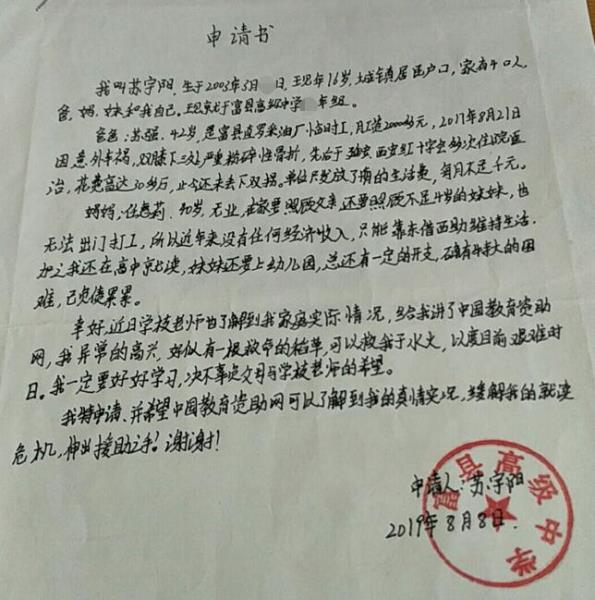 申请书
我叫苏宇阳,生于2003年3月 日,现年16岁,城镇居民户口,家有4口人,
爸,妈,妹和我自己。现就于富县高级中学 年级。
爸爸:苏强,42岁,是富县直罗采油厂临时工,月工资2000多元,2017年8月21日
因意外车祸,双膝下二处严重粉碎性骨折,先后于延安西安红十字会多次住院医
治,花费高达30多万,止今还未丢下双拐。单位只发放了有的生活费,每月不足千元。
妈妈:任 莉,40岁,无业,在家要照顾父亲,还要照顾不足4岁的妹妹,也
无法出门打工,所以近年来没有任何经济收入,只能靠东借西助维持生活.
加之我还在高中就读,妹妹还要上幼儿园,总还有一定的开支,确有特大的困
难,已负债累累。
幸好,近日学校老师为了解到我家庭实际情况,给我讲了中国教育资助
网,我异常的高兴,好似有一根救命的稻草,可以救我于水火,以度目前艰难时
日。我一定要好好学习,决不辜负父母与学校老师的希望。
我特申请、并希望中国教育资助网可以了解到我的真情实况,缓解我的就读
危机,伸出援助之手!谢谢!
申请人:苏宇阳
2019年8月8日.
富县高级中学